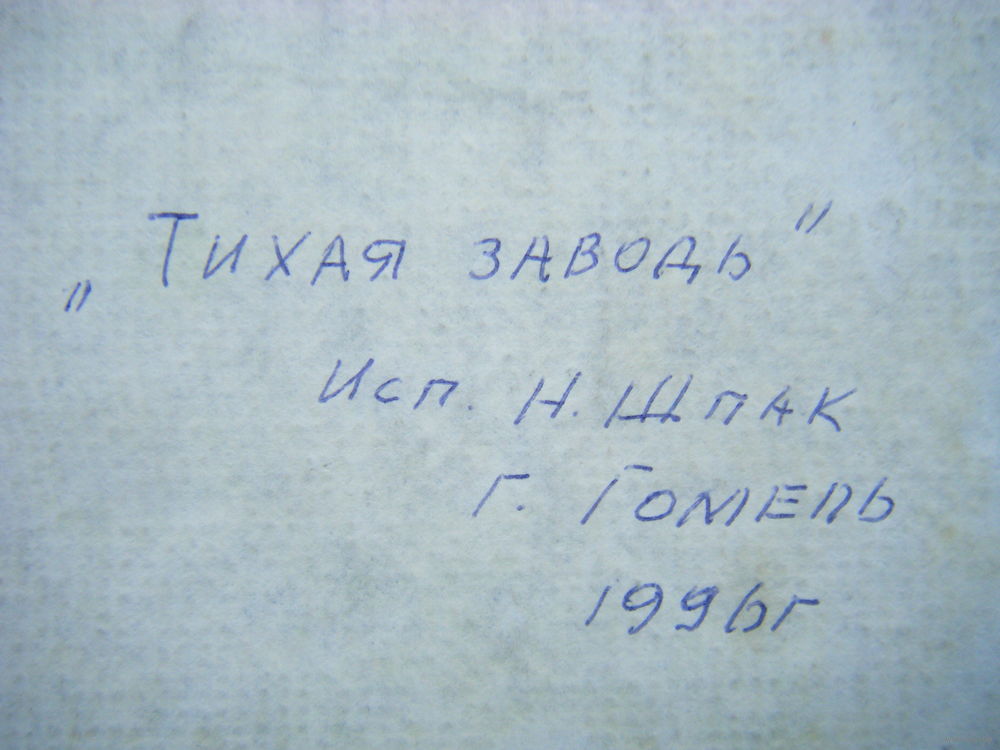 „Тихая заводь"
Исп. Н. Шпак
г. Гомель
1996г